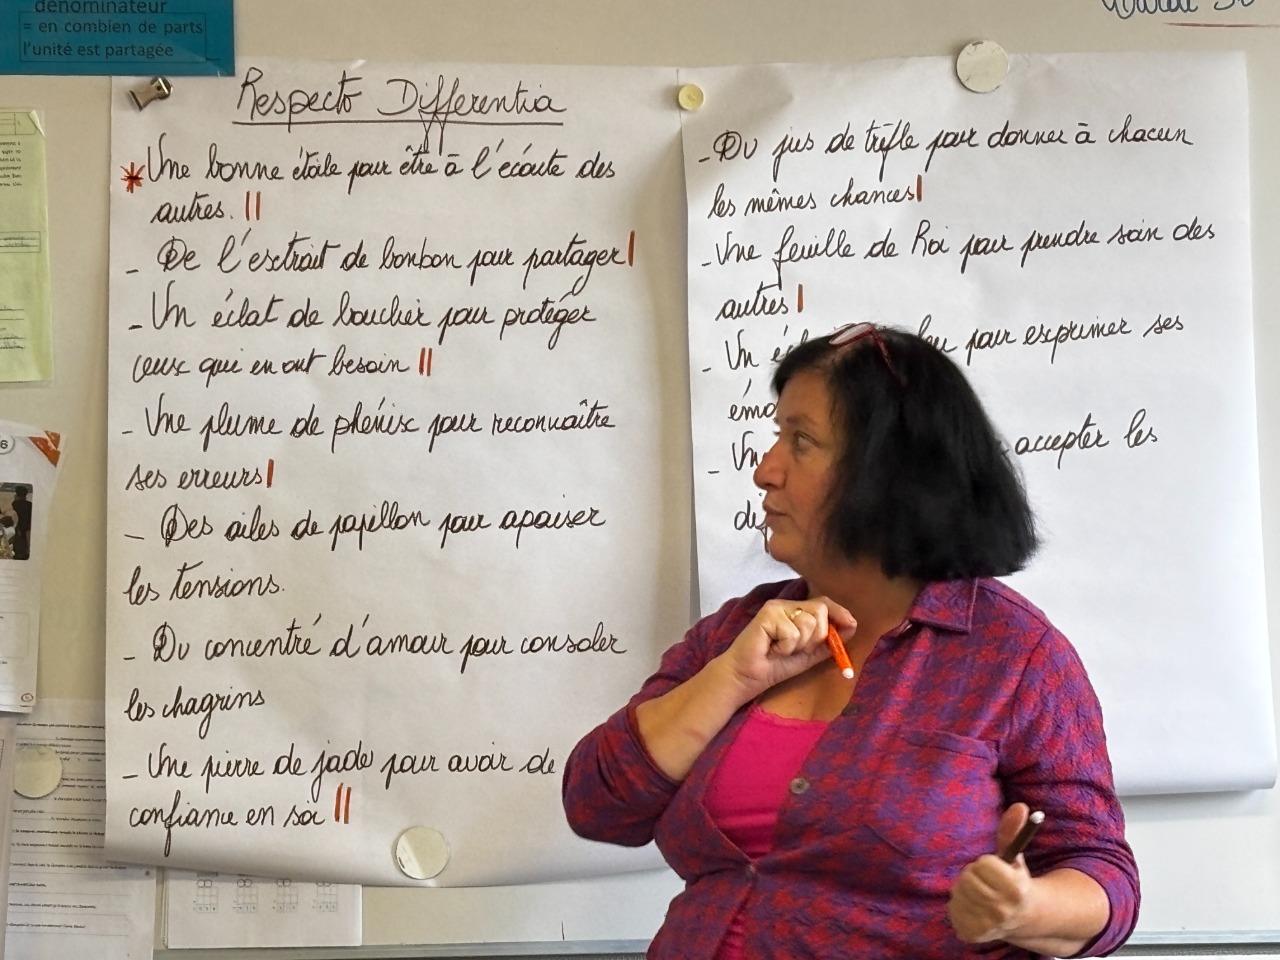 dénominateur
= en combien de parts
l'unité est partagée
Respecto Differentia
* Une bonne étoile pour être à l'écoute des
autres. ||
- De l'extrait de bonbon pour partager |
- Un éclat de bouclier pour protéger
ceux qui en ont besoin ||
- Une plume de phénix pour reconnaître
ses erreurs |
- Des ailes de papillon pour apaiser
les tensions.
- Du concentré d'amour pour consoler
les chagrins
- Une pierre de jade pour avoir de
confiance en soi ||
- Du jus de trèfle pour donner à chacun
les mêmes chances |
- Une feuille de Roi pour prendre soin des
autres |
- Un pour exprimer ses
- Un accepter les